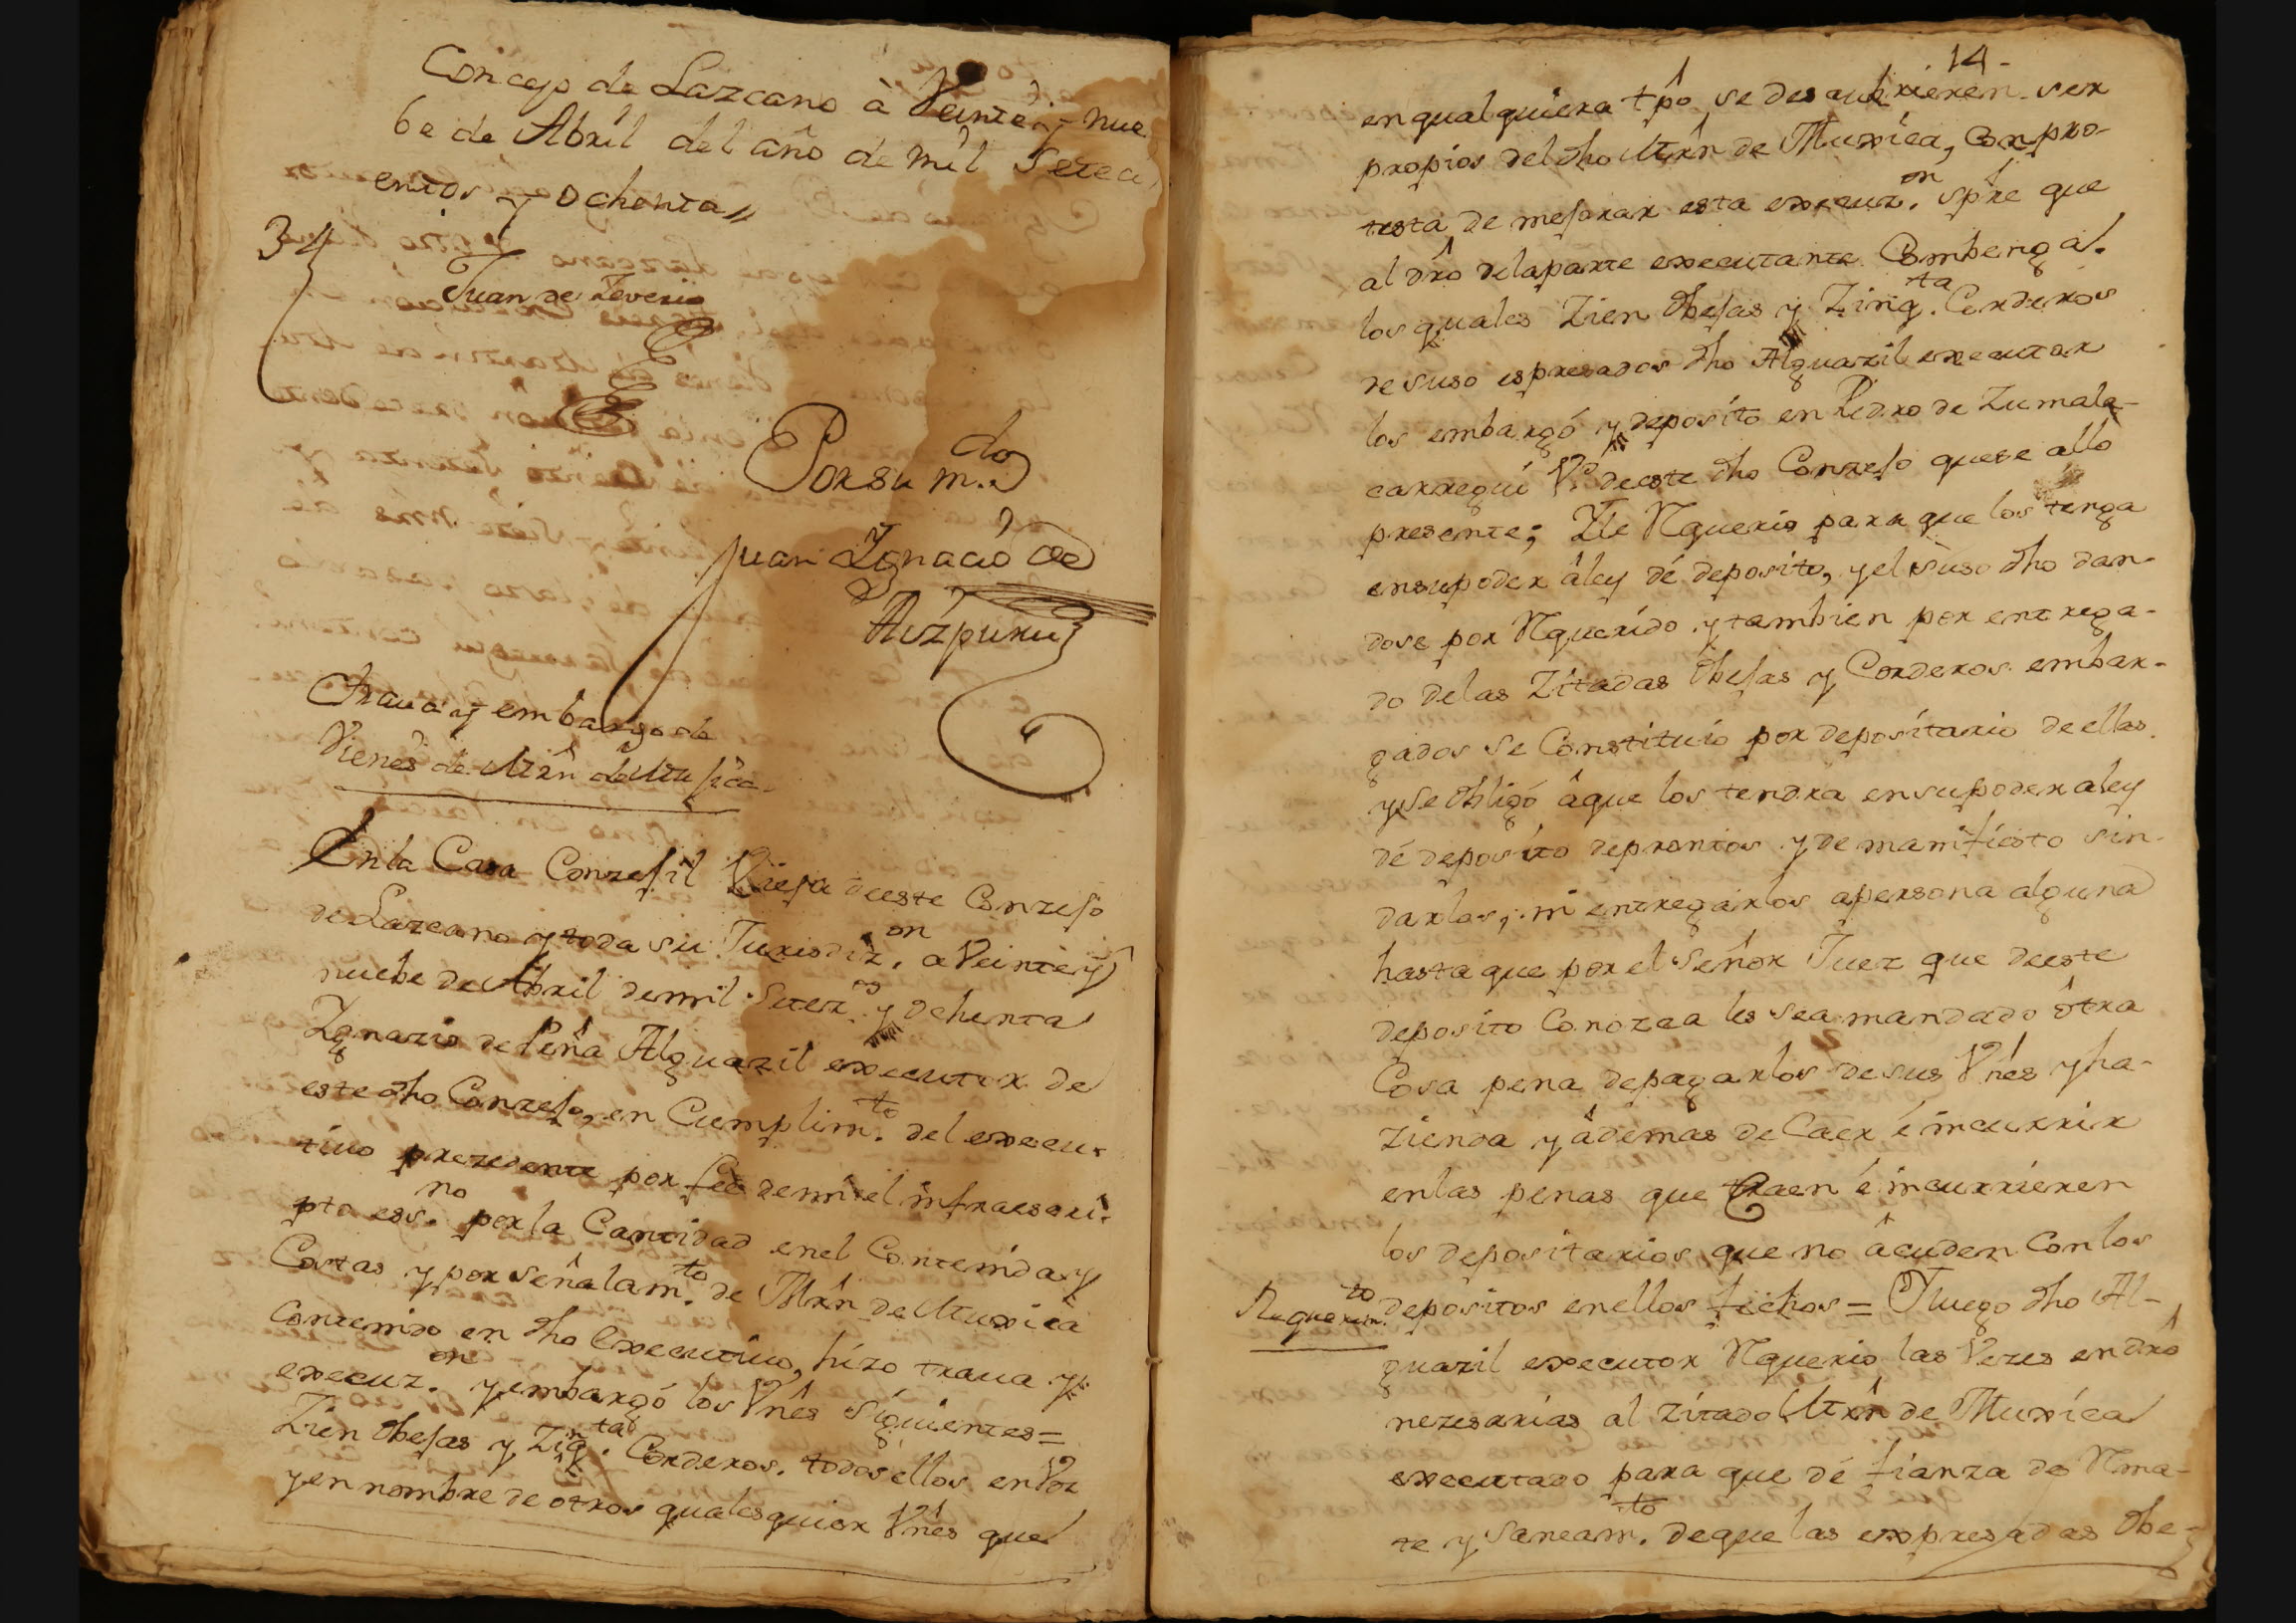 Concejo de Lazcano à Veinte y nue
be de Abril del año de mil Seteci
entos y Ochenta //
34
Juan de Zeverio
Por su m.do
Juan Ygnacio de
Aizpuru
Traua y embargo de
Vienes de Mrñ de Mujica.
En la Casa Conzejil Vieja de este Conzejo
de Lazcano y toda su Jurisdiz.on a Veinte y
nuebe de Abril de mil Setez.os y ochenta
Ygnazio de Peña Alguazil executor de
este dho Conzejo, en Cumplim.to del execu-
tiuo prezedente por fee de mi el infraescri-
pto ess.no por la Cantidad en el Contenida y
Costas y por señalam.to de Mrñ de Muxica
Contenido en dho Executiuo, hizo traua y
execuz.on y embargó los Vnês siguientes =
Zien Obejas y Zinq.ta Corderos. todos ellos en Voz
y en nombre de otros qualesquier Vnês que
14-
en qualquiera tpô se descubrieren ser
propios del dho Mrñ de Muxica, Con pro-
testa de mejorar esta execuz.on spre que
al drô de la parte executante Combenga.
los quales Zien Obejas y Zinq.ta Corderos
de suso espresados dho Alguazil executor
los embargó y deposito en Pedro de Zumala-
carregui V.º de este dho Conzejo que se alló
presente; Y le Rquerio para que los tenga
en su poder â ley dé deposito, y el suso dho dan-
dose por Rquerido y tambien por entrega-
do de las Zitadas Obejas y Corderos embar-
gados se Constituió por depositario de ellas
y se Obligó â que los tendra en su poder a ley
dé deposito de prontos y de manifiesto sin
darlas, ni entregarlos a persona alguna
hasta que por el Señor Juez que de este
deposito Conozca les sea mandado ôtra
Cosa pena de pagarlos de sus Vnés y ha-
zienda y âdemas de Caer é incurrir
en las penas que Caen é incurrieren
los depositarios que no âcuden Con los
Requerim.to
depositos en ellos fechos = Y luego dho Al-
guazil executor Rquerio las Vezes en drô
nezesarias al zitado Mrñ de Muxica
executado para que dé fianza de Rma-
te y Saneam.to de que las expresadas Obe-